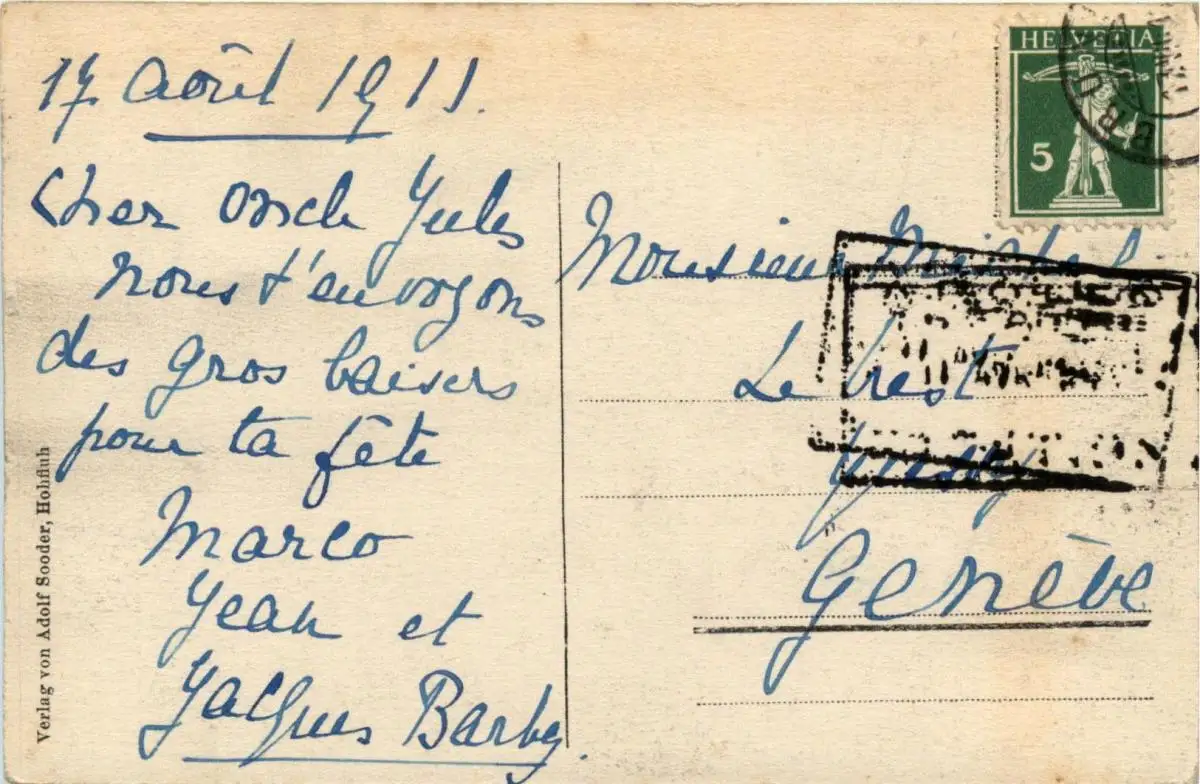 17 août 1911.
Cher oncle Jules
nous t'envoyons
des gros baisers
pour ta fête
Marco
Jean et
Jacques Barbey.
Verlag von Adolf Sooder, Hohfluh
HELVETIA
5
BRU
Monsieur Michel
Le Crest
Jussy
Genève